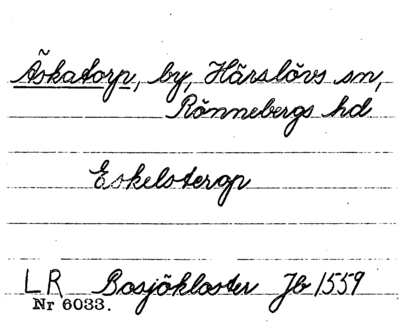 Äskatorp, by, Härslövs sn,
Rönnebergs hd
Eskelsterop
LR Bosjökloster Jb 1559
Nr 6033.